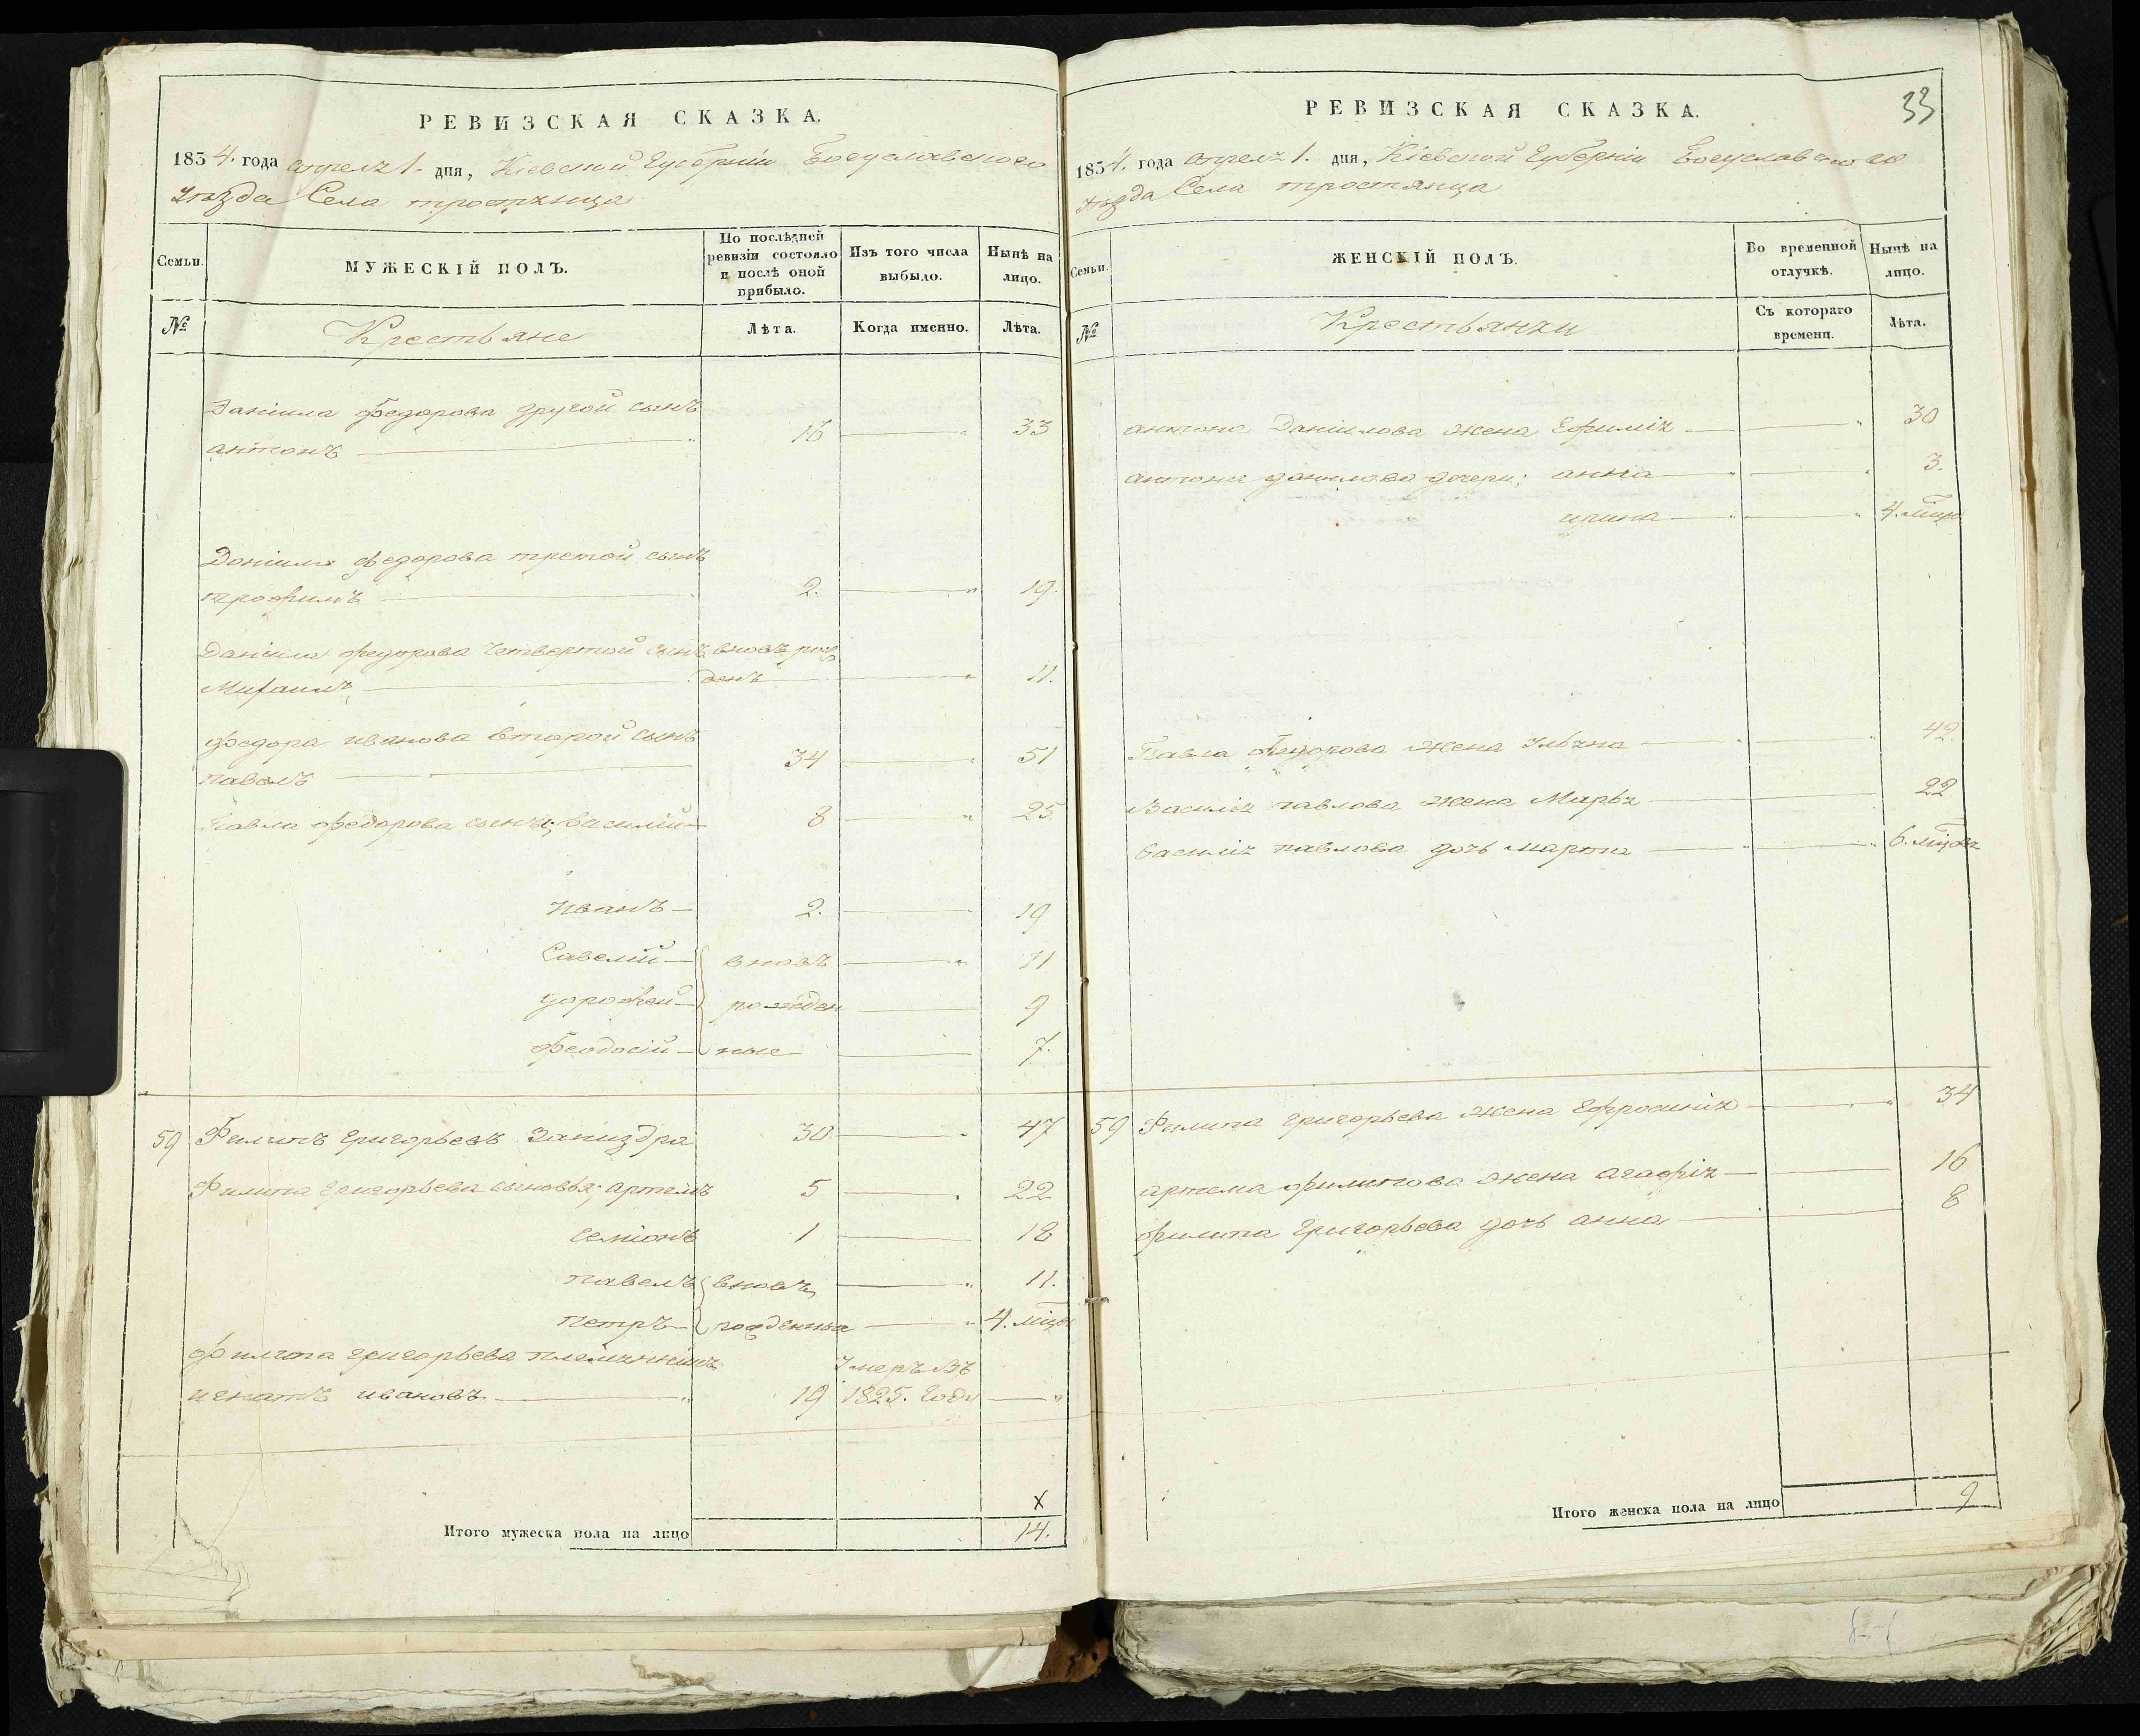 РЕВИЗСКАЯ СКАЗКА.
1854. года апреля 1. дня, Кіевской Губерніи Богуславского
уѣзда Села тростянца
Семьи.
МУЖЕСКІЙ ПОЛЪ.
По послѣдней
ревизіи состояло
и послѣ оной
прибыло.
Изъ того числа
выбыло.
Нынѣ на
лицо.
№
Крестьяне
Лѣта.
Когда именно.
Лѣта.
Даніила Федорова другой сынъ
антонъ 16 33
Даніила федорова третой сынъ
трофимъ 2. 19.
Даніила федорова четвертой сынъ вновъ рож
Михаилъ денъ 11.
федора иванова второй сынъ
павелъ 34 51
Павла федорова сыны; василій 8 25
иванъ 2. 19
Савелій вновъ 11
дорофей рожден 9
феодосій ные 7.
59 Филипъ григорьевъ 30 47
Филипа григорьева сыновья; артемъ 5 22
семіонъ 1 18
павелъ вновъ 11.
петръ рожденные 4. мѣця
Филипа григорьева племянникъ умеръ въ
игнатъ ивановъ 19 1825. году
х
Итого мужеска пола на лицо 14.
РЕВИЗСКАЯ СКАЗКА.
33
1854. года апреля 1. дня, Кіевской Губерніи Богуславского
уѣзда Села тростянца
Семьи.
ЖЕНСКІЙ ПОЛЪ.
Во временной
отлучкѣ.
Нынѣ на
лицо.
№
Крестьянки
Съ котораго
времени.
Лѣта.
антона Даніилова жена Ефимія 30
антона данилова дочери; анна 3.
ирина 4. мѣця
Павла Федорова жена Ульяна 42
Василія павлова жена Марья 22
василія павлова дочь марта 6. мѣцовъ
59 Филипа григорьева жена Ефросинія 34
артема филипова жена агафія 16
филипа Григорьева дочь анна 8
Итого женска пола на лицо 9